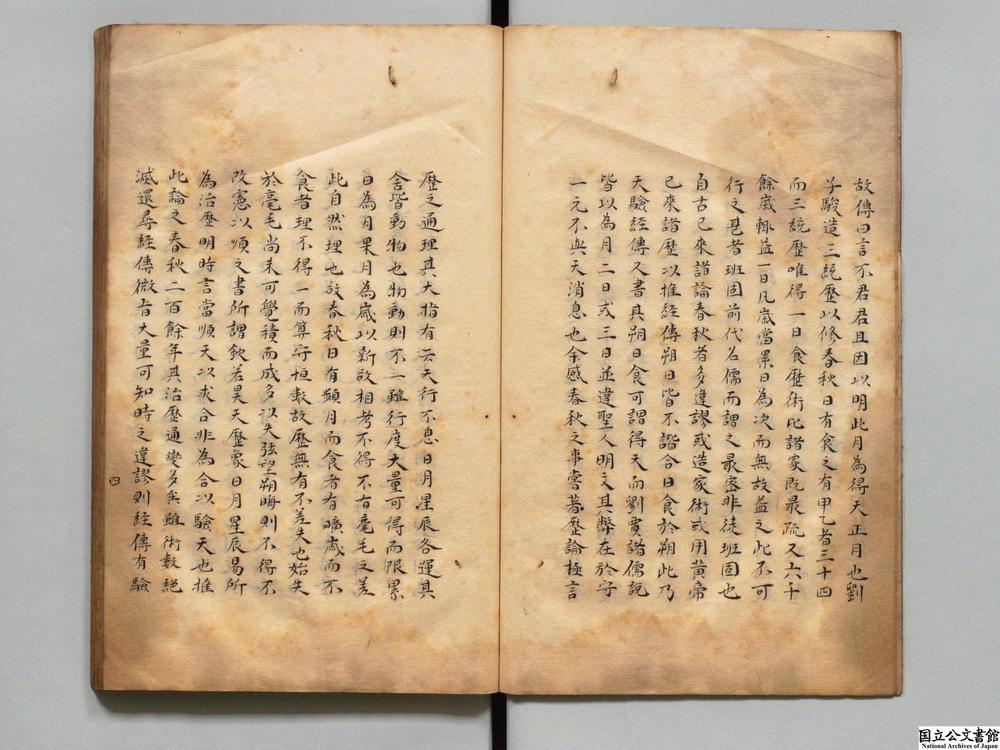 故傳曰言不君君且因以明此月為得天正月也劉
子駿造三統歷以修春秋日有食之有甲乙者三十四
而三統歷唯得一日食歷術比諸家既最疏又六千
餘歲輙益一日凡歲當累日為次而無故益之此不可
行之甚者班固前代名儒而謂之最密非徒班固也
自古已來諸論春秋者多違謬或造家術或用黄帝
已來諸歷以推經傳朔日皆不諧合日食於朔此乃
天驗經傳又書其朔日食可謂得天而劉賈諸儒說
皆以為月二日或三日並違聖人明文其弊在於守
一元不與天消息也余感春秋之事嘗著歷論極言
歷之通理其大指有云天行不息日月星辰各運其
舍皆動物也物動則不一雖行度大量可得而限累
日為月累月為歲以新故相考不得不有毫毛之差
此自然理也故春秋日有頻月而食者有曠歲而不
食者理不得一而算守恒數故歷無有不差失也始失
於毫毛尚未可覺積而成多以失弦望朔晦則不得不
改憲以順之書所謂欽若昊天歷象日月星辰易所
為治歷明時言當順天以求合非為合以驗天也推
此論之春秋二百餘年其治歷通變多矣雖術數絕
滅還尋經傳微旨大量可知時之違謬則經傳有驗
四
国立公文書館
National Archives of Japan